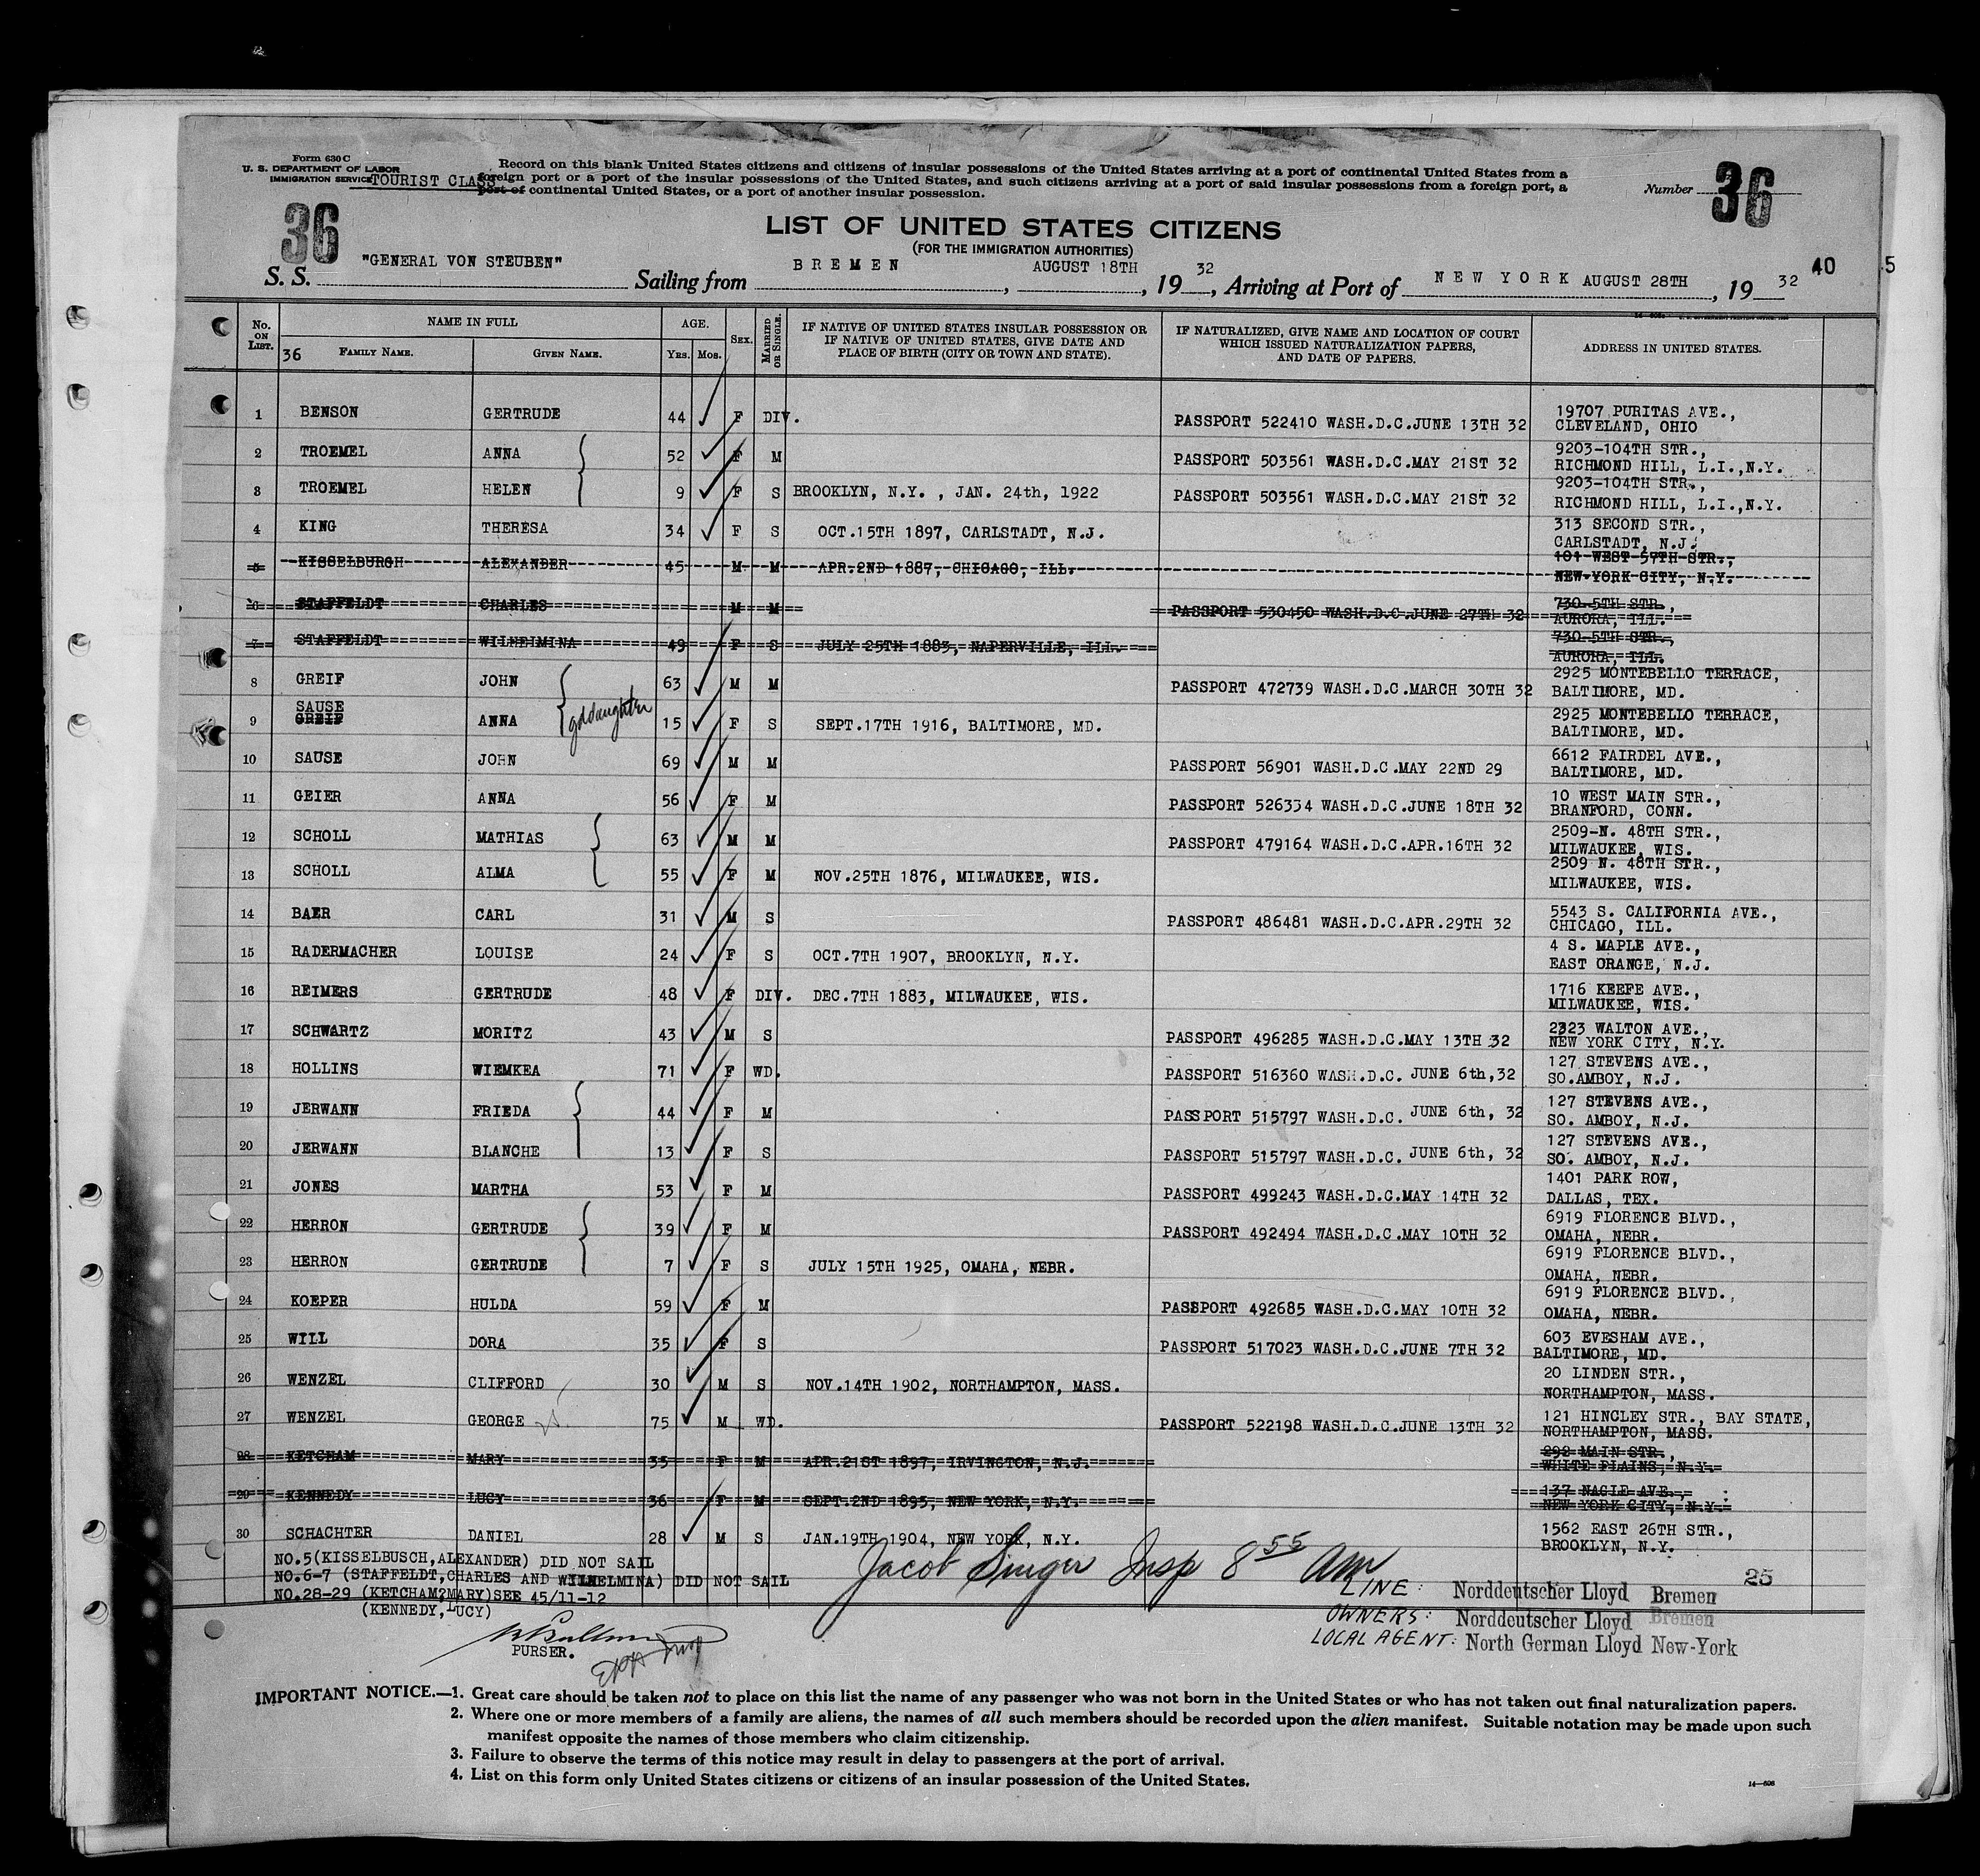 Form 630 C
U. S. DEPARTMENT OF LABOR
IMMIGRATION SERVICE
TOURIST CLASS
Record on this blank United States citizens and citizens of insular possessions of the United States arriving at a port of continental United States from a
foreign port or a port of the insular possessions of the United States, and such citizens arriving at a port of said insular possessions from a foreign port, a
port of continental United States, or a port of another insular possession.
Number 36
36
LIST OF UNITED STATES CITIZENS
(FOR THE IMMIGRATION AUTHORITIES)
S. S. "GENERAL VON STEUBEN" Sailing from BREMEN, AUGUST 18TH, 1932, Arriving at Port of NEW YORK AUGUST 28TH, 1932
40 5
No. ON LIST. NAME IN FULL AGE. SEX. MARRIED OR SINGLE. IF NATIVE OF UNITED STATES INSULAR POSSESSION OR IF NATIVE OF UNITED STATES, GIVE DATE AND PLACE OF BIRTH (CITY OR TOWN AND STATE). IF NATURALIZED, GIVE NAME AND LOCATION OF COURT WHICH ISSUED NATURALIZATION PAPERS, AND DATE OF PAPERS. ADDRESS IN UNITED STATES.
36 FAMILY NAME. GIVEN NAME. YRS. MOS.
1 BENSON GERTRUDE 44 F DIV. PASSPORT 522410 WASH.D.C.JUNE 13TH 32 19707 PURITAS AVE., CLEVELAND, OHIO
2 TROEMEL ANNA 52 F M PASSPORT 503561 WASH.D.C.MAY 21ST 32 9203-104TH STR., RICHMOND HILL, L.I.,N.Y.
3 TROEMEL HELEN 9 F S BROOKLYN, N.Y. , JAN. 24th, 1922 PASSPORT 503561 WASH.D.C.MAY 21ST 32 9203-104TH STR., RICHMOND HILL, L.I.,N.Y.
4 KING THERESA 34 F S OCT.15TH 1897, CARLSTADT, N.J. 313 SECOND STR., CARLSTADT, N.J.
5 KISSELBURGH ALEXANDER 45 M M APR.2ND 1887, CHICAGO, ILL. 101 WEST 57TH STR., NEW YORK CITY, N.Y.
6 STAFFELDT CHARLES M M PASSPORT 530450 WASH.D.C.JUNE 27TH 32 730-5TH STR., AURORA, ILL.
7 STAFFELDT WILHELMINA 49 F S JULY 25TH 1883, NAPERVILLE, ILL. 730-5TH STR., AURORA, ILL.
8 GREIF JOHN 63 M M PASSPORT 472739 WASH.D.C.MARCH 30TH 32 2925 MONTEBELLO TERRACE, BALTIMORE, MD.
SAUSE
9 GREIF ANNA gddaughter 15 F S SEPT.17TH 1916, BALTIMORE, MD. 2925 MONTEBELLO TERRACE, BALTIMORE, MD.
10 SAUSE JOHN 69 M M PASSPORT 56901 WASH.D.C.MAY 22ND 29 6612 FAIRDEL AVE., BALTIMORE, MD.
11 GEIER ANNA 56 F M PASSPORT 526334 WASH.D.C.JUNE 18TH 32 10 WEST MAIN STR., BRANFORD, CONN.
12 SCHOLL MATHIAS 63 M M PASSPORT 479164 WASH.D.C.APR.16TH 32 2509-N. 48TH STR., MILWAUKEE, WIS.
13 SCHOLL ALMA 55 F M NOV.25TH 1876, MILWAUKEE, WIS. 2509 N. 48TH STR., MILWAUKEE, WIS.
14 BAER CARL 31 M S PASSPORT 486481 WASH.D.C.APR.29TH 32 5543 S. CALIFORNIA AVE., CHICAGO, ILL.
15 RADERMACHER LOUISE 24 F S OCT.7TH 1907, BROOKLYN, N.Y. 4 S. MAPLE AVE., EAST ORANGE, N.J.
16 REIMERS GERTRUDE 48 F DIV. DEC.7TH 1883, MILWAUKEE, WIS. 1716 KEEFE AVE., MILWAUKEE, WIS.
17 SCHWARTZ MORITZ 43 M S PASSPORT 496285 WASH.D.C.MAY 13TH 32 2323 WALTON AVE., NEW YORK CITY, N.Y.
18 HOLLINS WIEMKEA 71 F WD. PASSPORT 516360 WASH.D.C. JUNE 6th,32 127 STEVENS AVE., SO.AMBOY, N.J.
19 JERWANN FRIEDA 44 F M PASSPORT 515797 WASH.D.C. JUNE 6th, 32 127 STEVENS AVE., SO. AMBOY, N.J.
20 JERWANN BLANCHE 13 F S PASSPORT 515797 WASH.D.C. JUNE 6th, 32 127 STEVENS AVE., SO. AMBOY, N.J.
21 JONES MARTHA 53 F M PASSPORT 499243 WASH.D.C.MAY 14TH 32 1401 PARK ROW, DALLAS, TEX.
22 HERRON GERTRUDE 39 F M PASSPORT 492494 WASH.D.C.MAY 10TH 32 6919 FLORENCE BLVD., OMAHA, NEBR.
23 HERRON GERTRUDE 7 F S JULY 15TH 1925, OMAHA, NEBR. 6919 FLORENCE BLVD., OMAHA, NEBR.
24 KOEPER HULDA 59 F M PASSPORT 492685 WASH.D.C.MAY 10TH 32 6919 FLORENCE BLVD., OMAHA, NEBR.
25 WILL DORA 35 F S PASSPORT 517023 WASH.D.C.JUNE 7TH 32 603 EVESHAM AVE., BALTIMORE, MD.
26 WENZEL CLIFFORD 30 M S NOV.14TH 1902, NORTHAMPTON, MASS. 20 LINDEN STR., NORTHAMPTON, MASS.
27 WENZEL GEORGE 75 M WD. PASSPORT 522198 WASH.D.C.JUNE 13TH 32 121 HINCLEY STR., BAY STATE, NORTHAMPTON, MASS.
28 KETCHAM MARY 35 F M APR.21ST 1897, IRVINGTON, N.J. 292 MAIN STR., WHITE PLAINS, N.Y.
29 KENNEDY LUCY 36 F M SEPT.2ND 1895, NEW YORK, N.Y. 137 NAGLE AVE., NEW YORK CITY, N.Y.
30 SCHACHTER DANIEL 28 M S JAN.19TH 1904, NEW YORK, N.Y. 1562 EAST 26TH STR., BROOKLYN, N.Y.
NO.5(KISSELBUSCH,ALEXANDER) DID NOT SAIL
NO.6-7 (STAFFELDT,CHARLES AND WILHELMINA) DID NOT SAIL
NO.28-29 (KETCHAM?MARY)SEE 45/11-12
(KENNEDY,LUCY)
Jacob Singer Insp 8 55 AM
25
LINE: Norddeutscher Lloyd Bremen
OWNERS: Norddeutscher Lloyd Bremen
LOCAL AGENT: North German Lloyd New-York
PURSER.
IMPORTANT NOTICE.—1. Great care should be taken not to place on this list the name of any passenger who was not born in the United States or who has not taken out final naturalization papers.
2. Where one or more members of a family are aliens, the names of all such members should be recorded upon the alien manifest. Suitable notation may be made upon such
manifest opposite the names of those members who claim citizenship.
3. Failure to observe the terms of this notice may result in delay to passengers at the port of arrival.
4. List on this form only United States citizens or citizens of an insular possession of the United States.